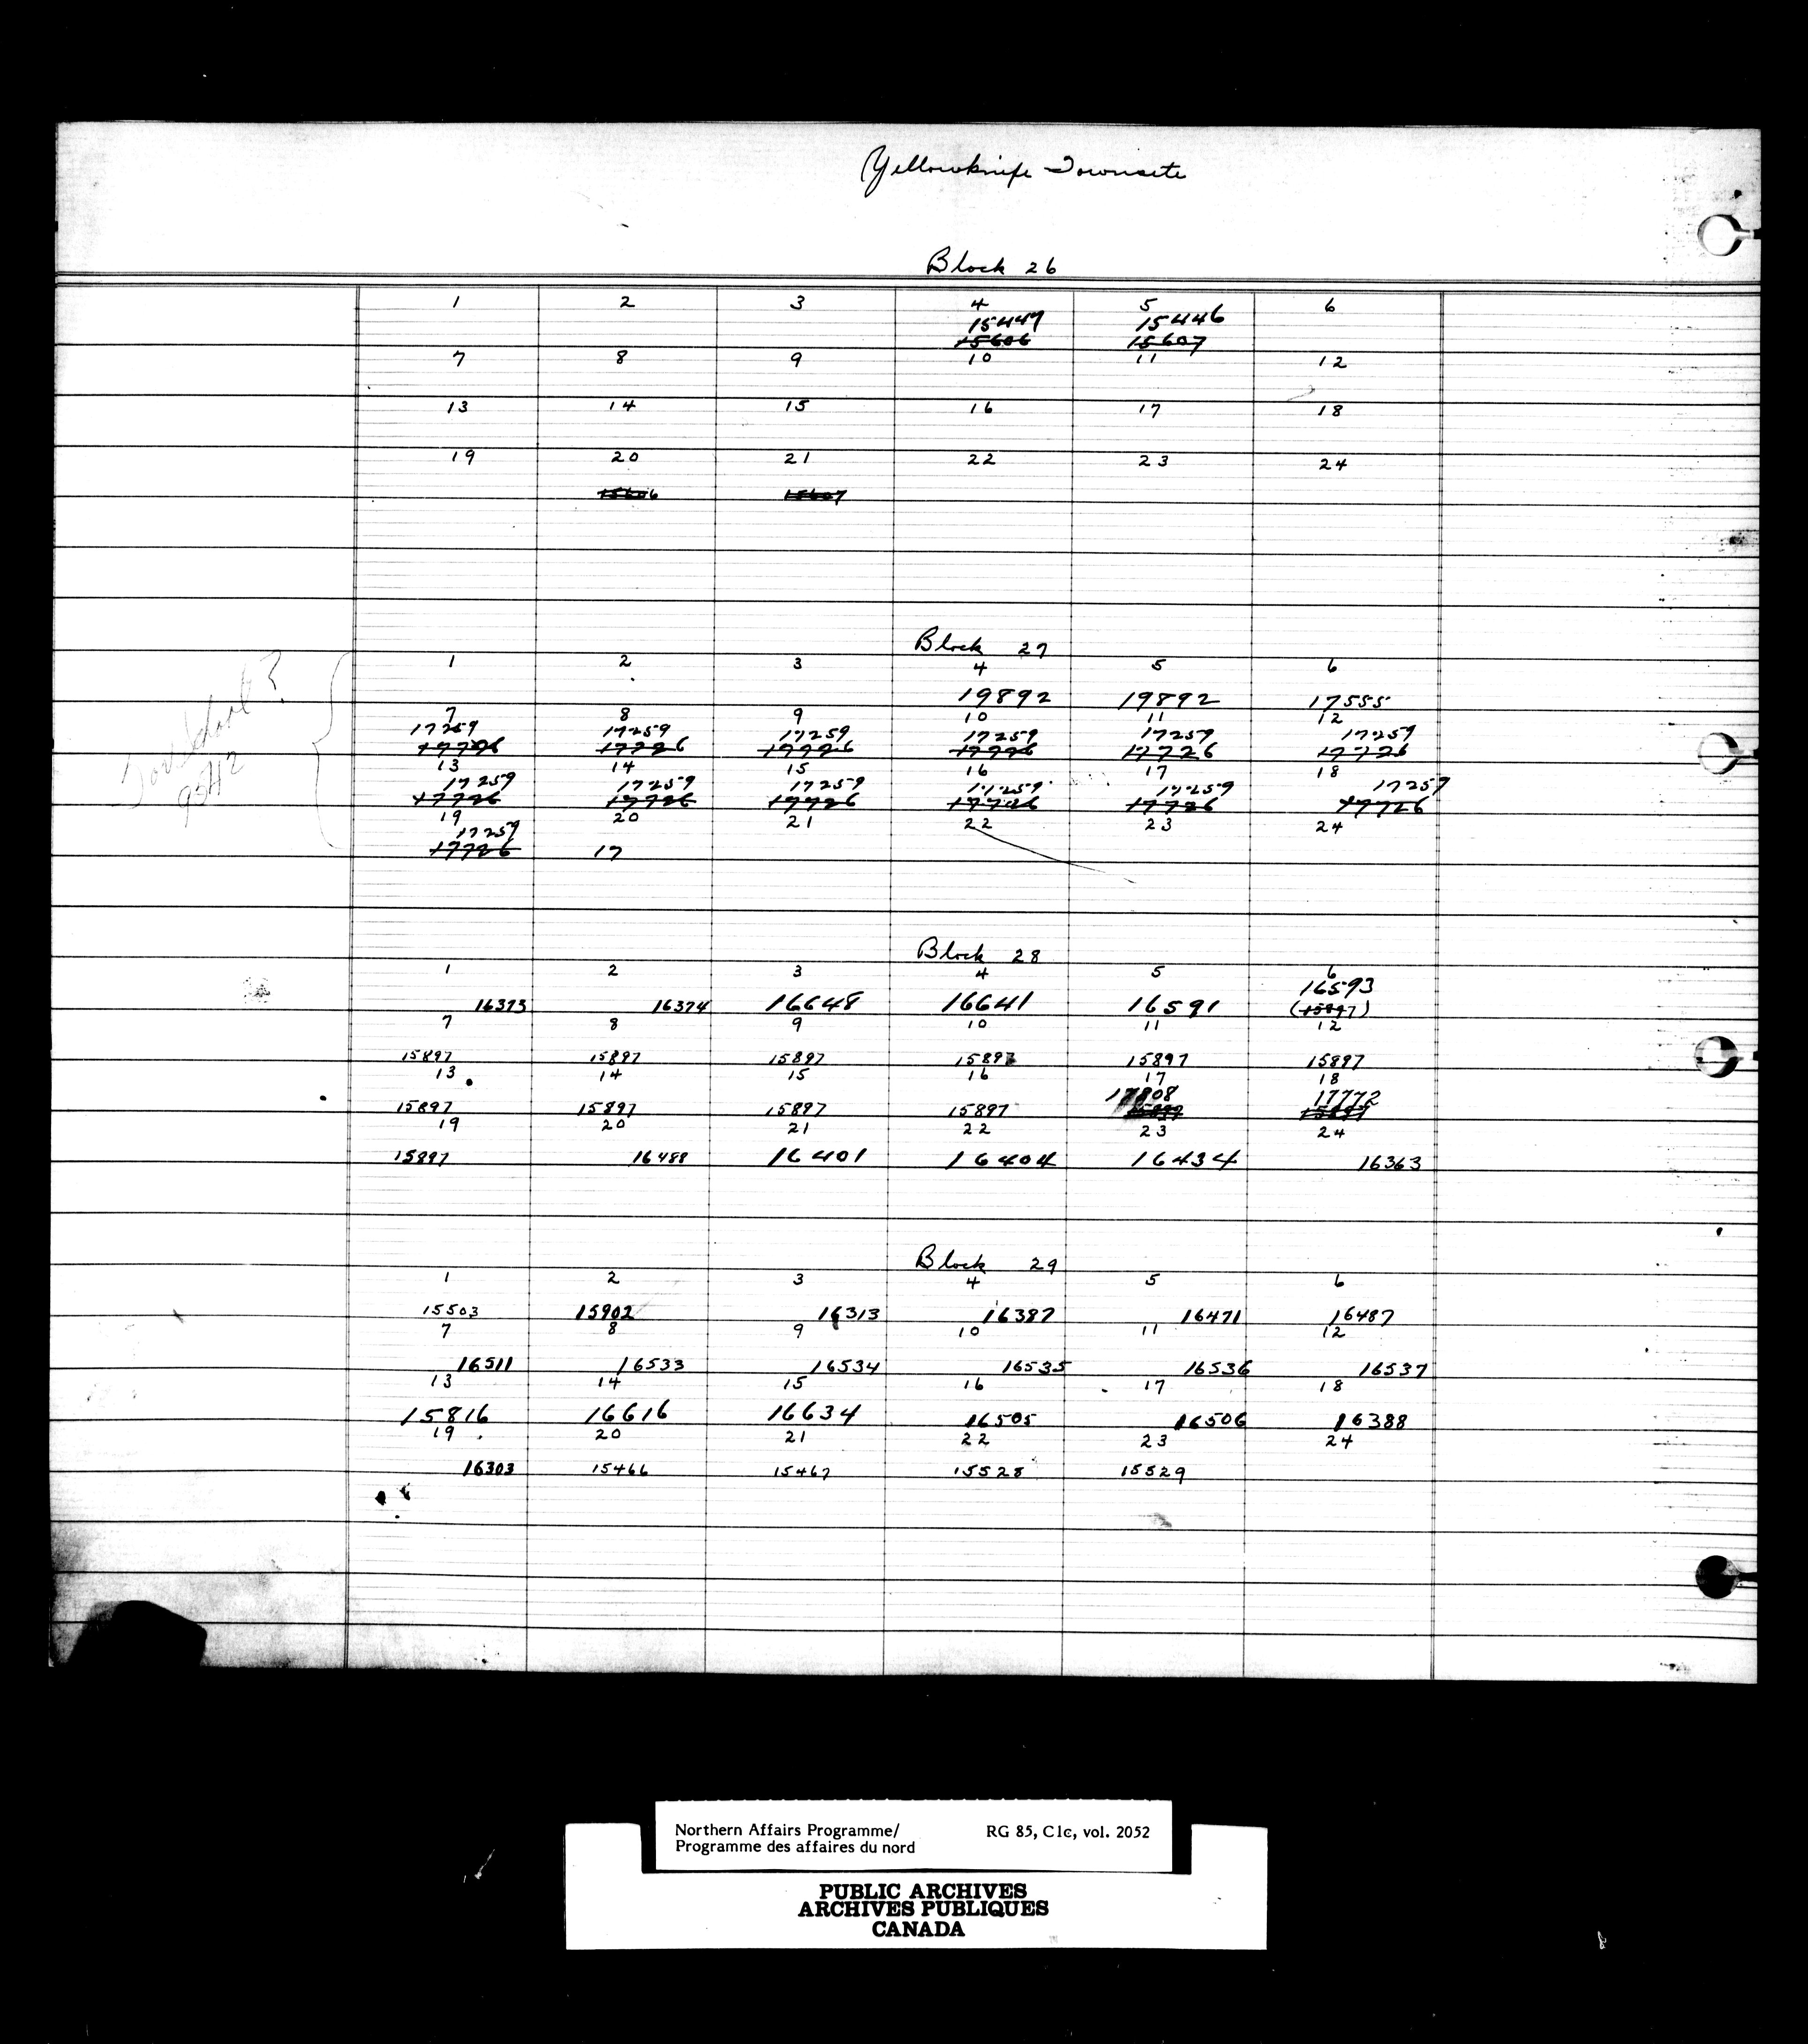 Yellowknife Townsite
Block 26
1 2 3 4 5 6
15447 15446
15606 15607
7 8 9 10 11 12
13 14 15 16 17 18
19 20 21 22 23 24
15606 15607
Block 27
1 2 3 4 5 6
19892 19892 17555
7 8 9 10 11 12
17259 17259 17259 17259 17259 17259
17726 17726 17726 17726 17726 17726
13 14 15 16 17 18
17259 17259 17259 17259 17259 17259
17726 17726 17726 17726 17726 17726
19 20 21 22 23 24
17259
17726 17
Block 28
1 2 3 4 5 6
16593
16373 16374 16648 16641 16591 (15897)
7 8 9 10 11 12
15897 15897 15897 15897 15897 15897
13 14 15 16 17 18
17808 17772
15897 15897 15897 15897 15897 15897
19 20 21 22 23 24
15897 16488 16401 16404 16434 16363
Block 29
1 2 3 4 5 6
15503 15902 16313 16387 16471 16487
7 8 9 10 11 12
16511 16533 16534 16535 16536 16537
13 14 15 16 17 18
15816 16616 16634 16505 16506 16388
19 20 21 22 23 24
16303 15466 15467 15528 15529
Northern Affairs Programme/ RG 85, C1c, vol. 2052
Programme des affaires du nord
PUBLIC ARCHIVES
ARCHIVES PUBLIQUES
CANADA